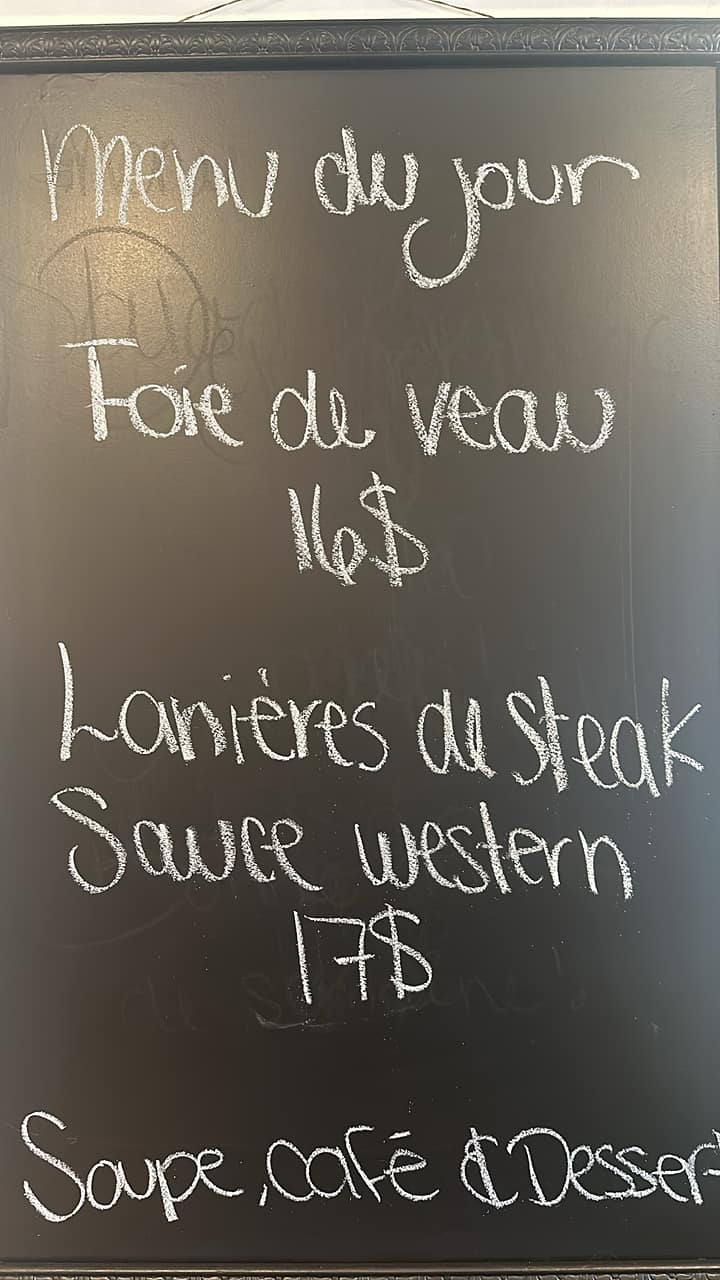 Menu du jour
Foie de veau
16$
Lanières de steak
Sauce western
17$
Soupe, café & Dessert